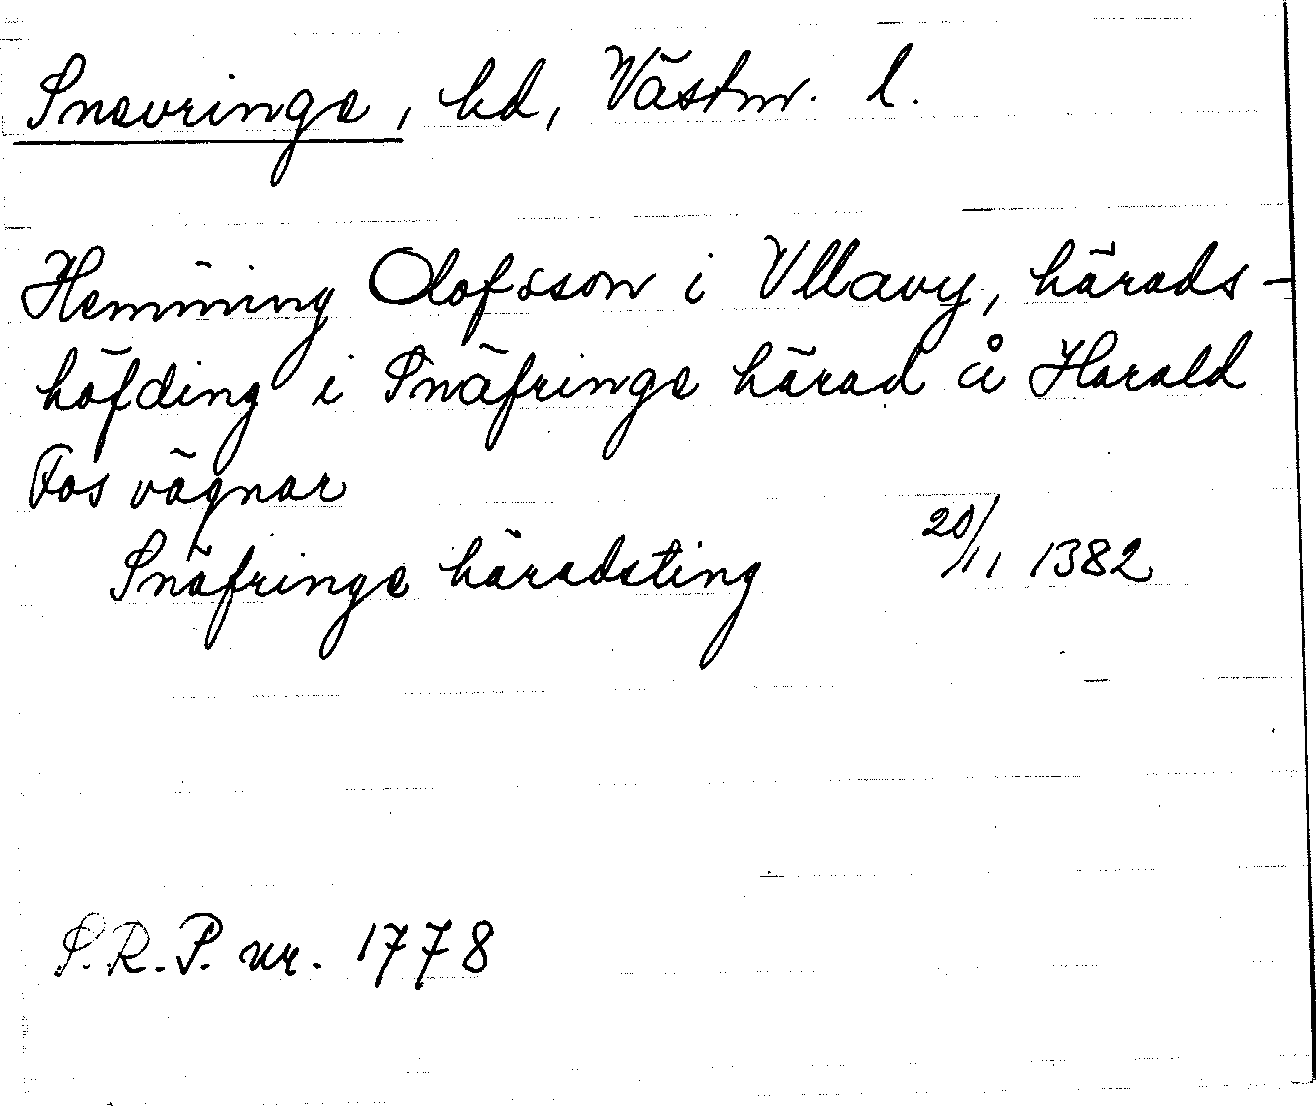 Snevringe, hd, Västm. l.
Hemming Olofsson i Vllavy, härads-
höfding i Snäfringe härad å Harald
Fos vägnar
Snäfringe häradsting 20/11 1382
S.R.P. nr. 1778